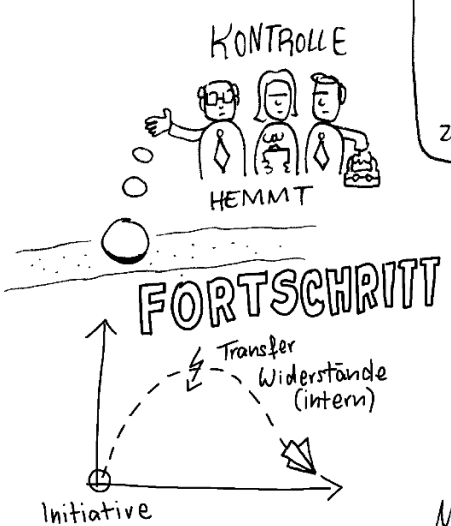 KONTROLLE
HEMMT
FORTSCHRITT
Transfer
Widerstände
(intern)
Initiative